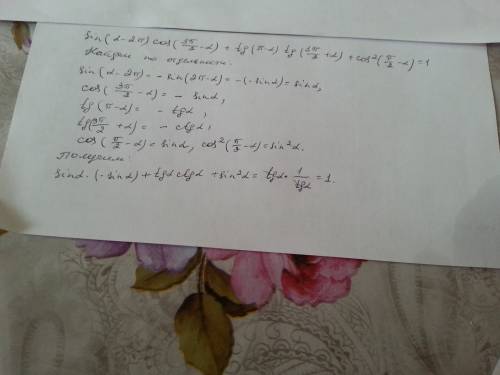 sin(α-2π) cos(3π/2-α) + tg(π-α) tg(3π/2+α) + cos²(π/2-α)=1
Найдем по отдельности:
sin(α-2π) = -sin(2π-α) = -(-sinα) = sinα,
cos(3π/2-α) = - sinα,
tg(π-α) = - tgα,
tg(3π/2+α) = - ctgα,
cos(π/2-α) = sinα, cos²(π/2-α) = sin²α.
Получим:
sinα·(-sinα) + tgα ctgα + sin²α = tgα · 1/tgα = 1.